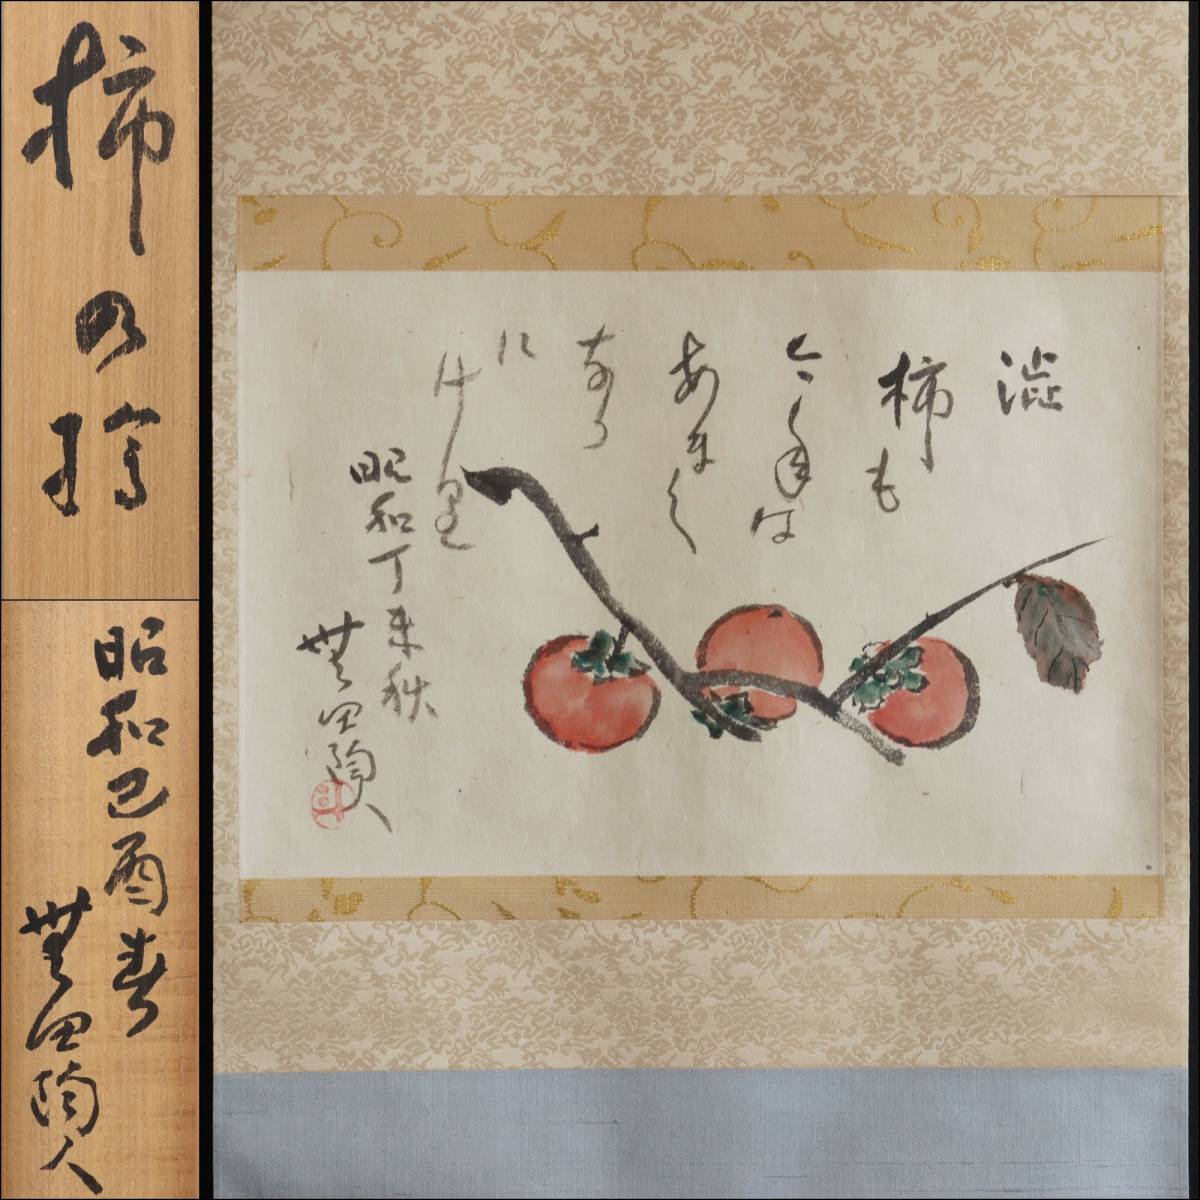 柿の繪
昭和己酉春
無田陶人
澁
柿も
今年は
あまく
なり
に
けり
昭和丁未秋
無田陶人